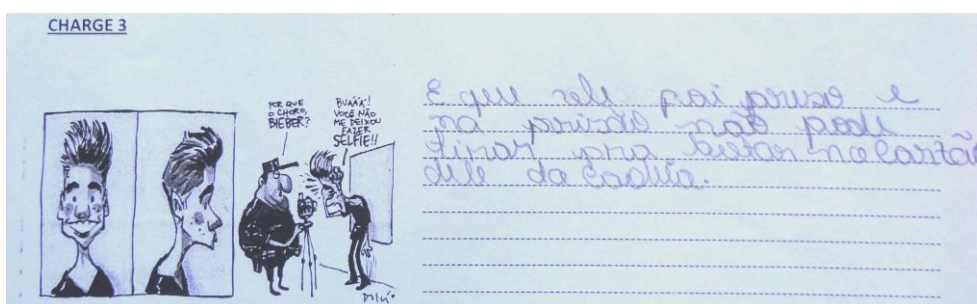 CHARGE 3
POR QUE
O CHORO,
BIEBER?
BUÁÁÁ!
VOCÊ NÃO
ME DEIXOU
FAZER
SELFIE!!
E que ele foi preso e
na prisão não pode
tirar pra botar no cartão
dele da cadeia.